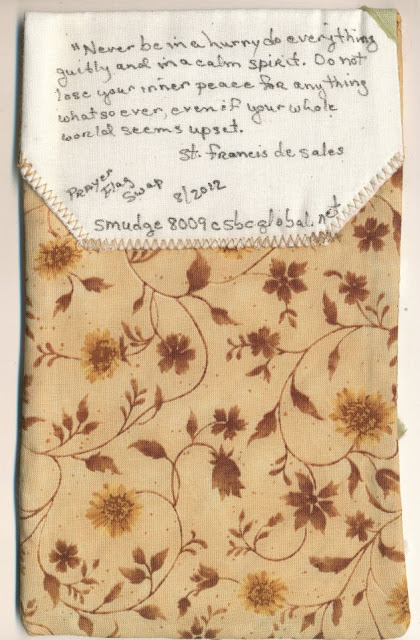 "Never be in a hurry do everything
quitly and in a calm spirit. Do not
lose your inner peace for anything
whatsoever, even if your whole
world seems upset.
St. Francis de Sales
Prayer
Flag
Swap
8/2012
smudge8009@sbcglobal.net